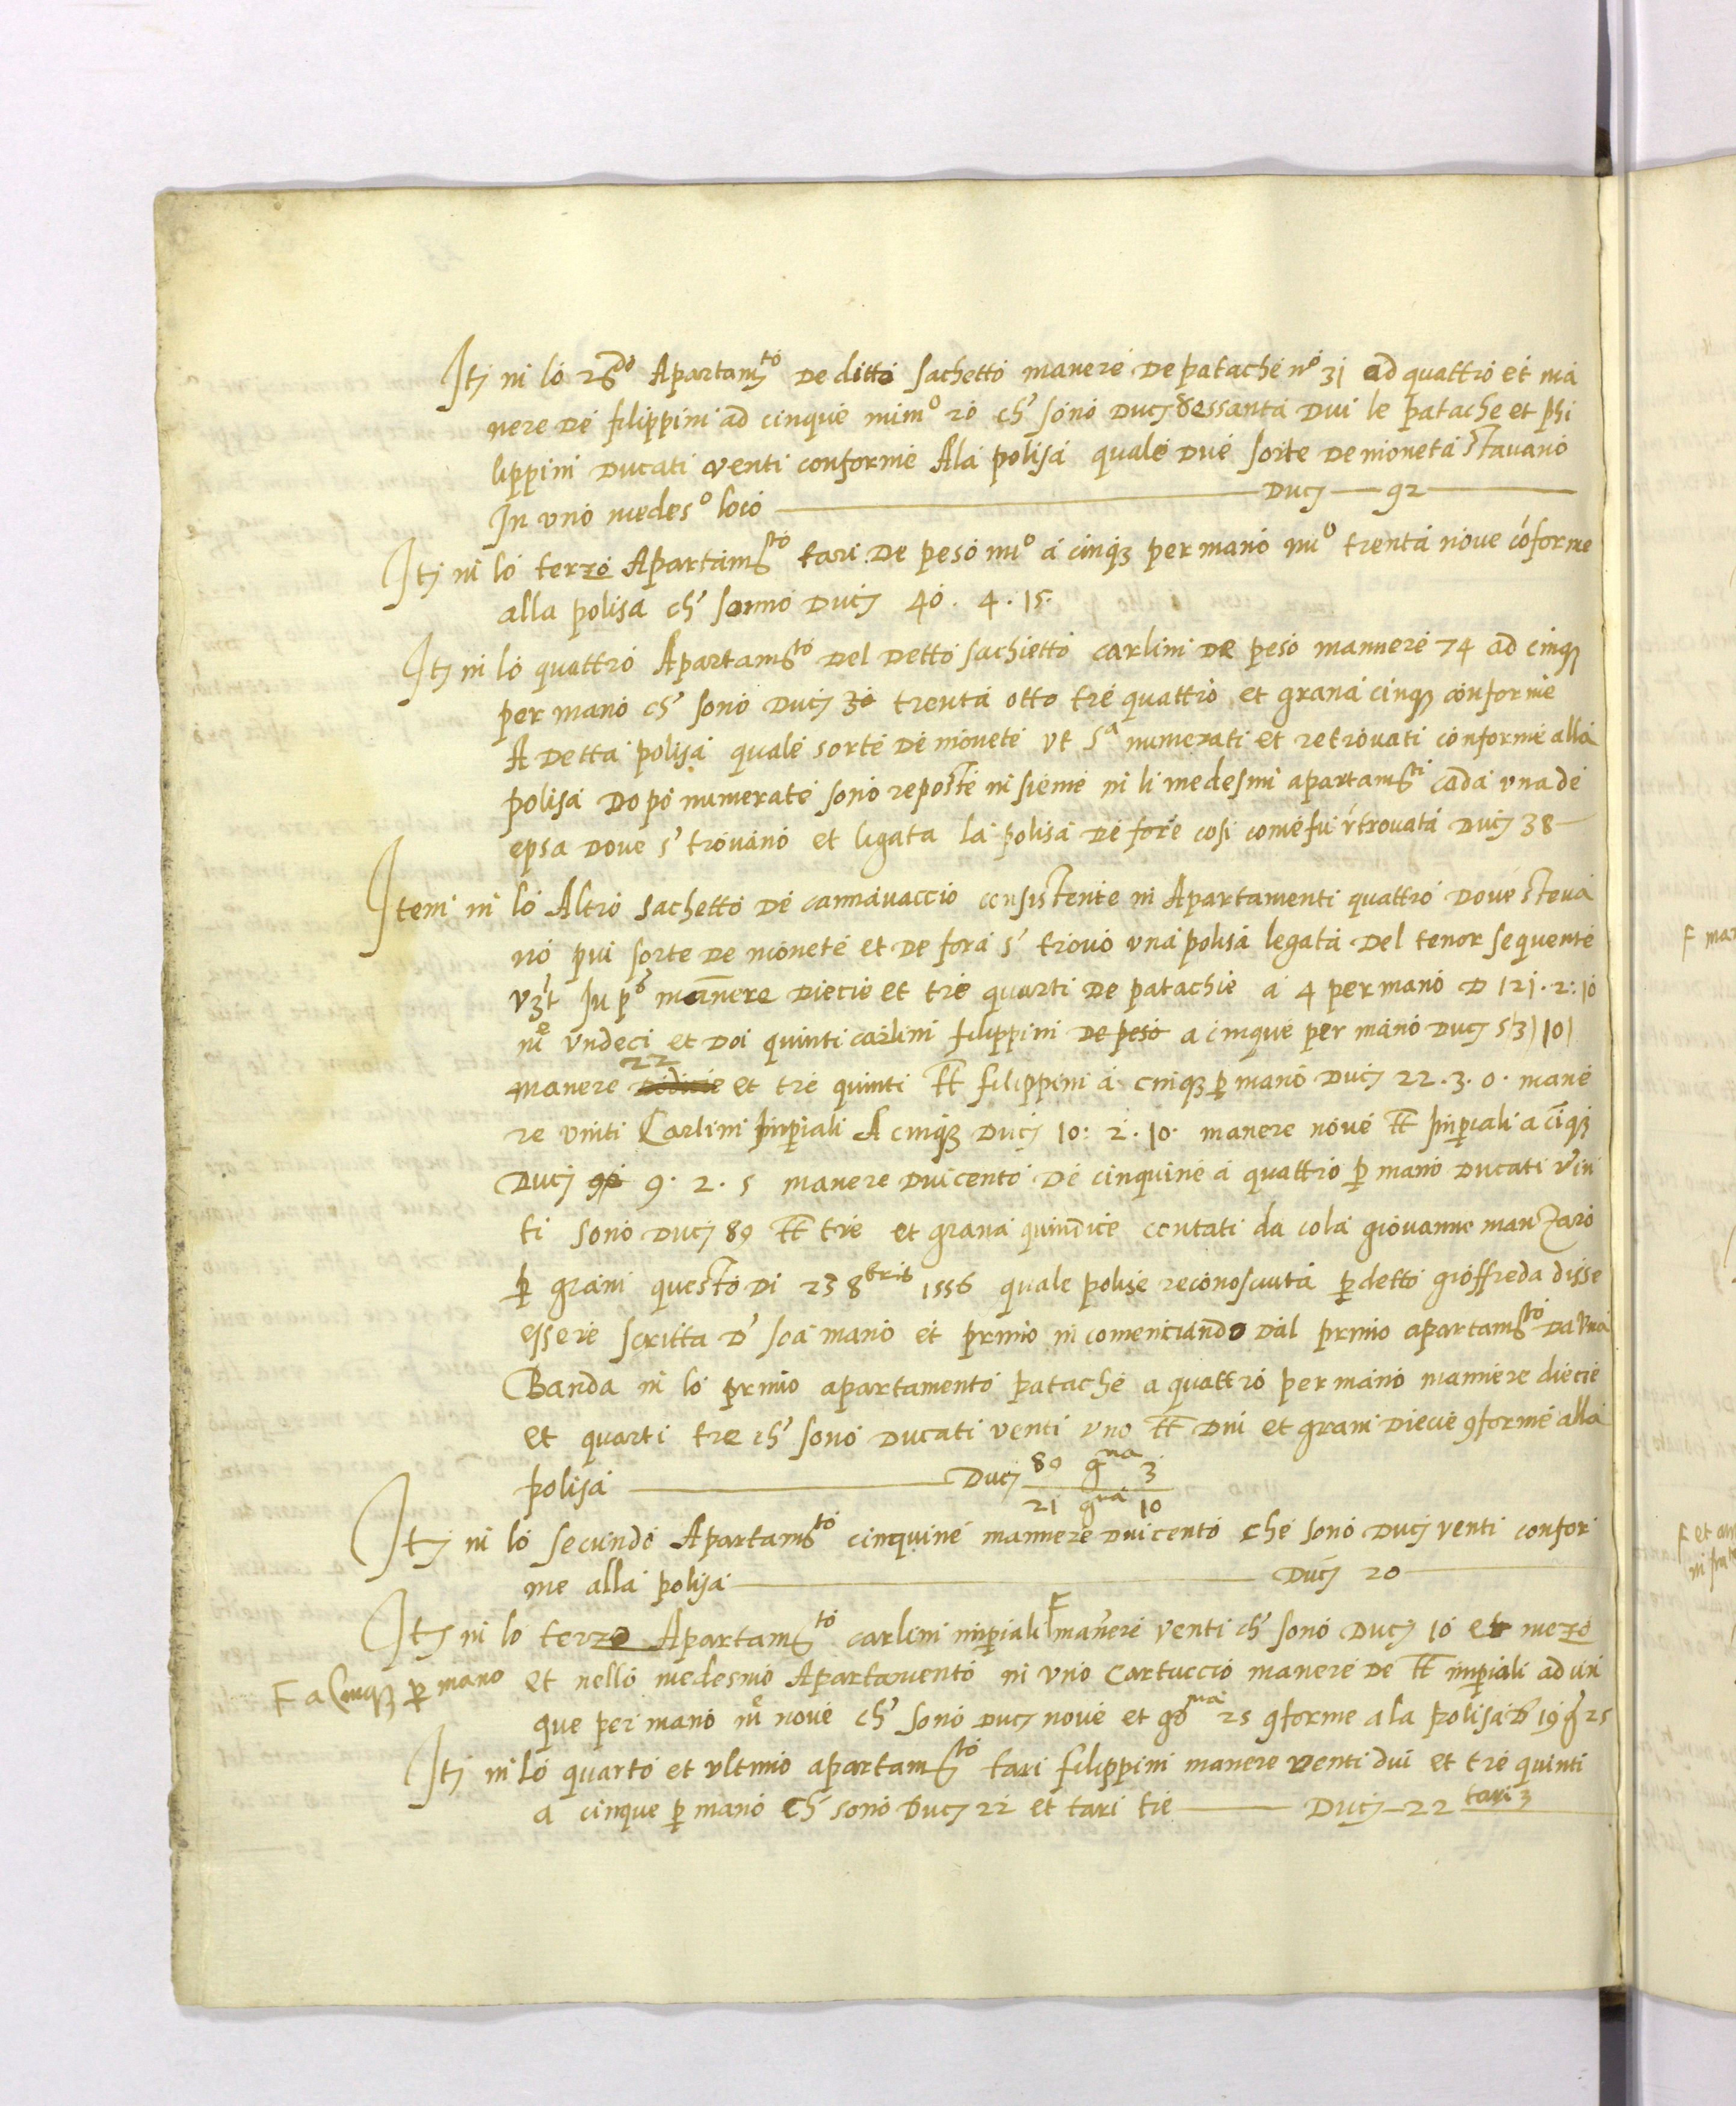 Itȝ in lo 2do Apartamto de ditto sachetto manere de patache no 31 ad quattro et ma
nere de filippini ad cinque num.o 20 ch' sono Ducj sessanta dui le patache et phi
lippini ducati venti conforme Ala polisa quale due sorte de moneta stavano
In uno medes.o loco Ducj 92
Itȝ in lo terzo Apartamto tari de peso nu.o a cinqȝ per mano nu.o trenta nove cõforme
alla polisa ch' sonno Ducj 40. 4. 15.
Itȝ in lo quattro Apartamto del detto sachietto carlini de peso mannere 74 ad cinqȝ
per mano ch' sono Ducj trenta otto tre quattro et grana cinqȝ conforme
A detta polisa quale sorte de monete ut s.a numerati et retrovati conforme alla
polisa dopo numerate sono reposte insieme in li medesmi apartamti cada una de
epsa dove s' trovano et ligata la polisa de fore cosi come fu rtrovata Ducj 38
Item in lo Altro sachetto de cannavaccio consistente in Apartamenti quattro dove steva
no piu sorte de monete et de fora s' trovo una polisa legata del tenor sequente
vȝt In p.o mannere diecie et tre quarti de patachie a 4 per mano D 121. 2: 10
me undeci et doi quinti carlini filippini de peso a cinque per mano Ducj 5|3|10|
manere 22 et tre quinti tt filippini a cinqȝ p mano Ducj 22. 3. 0. mane
re vinti Carlini imperiali A cinqȝ Ducj 10: 2. 10. manere nove tt imperiali a cinqȝ
Ducj 9. 2. 5 manere duicento de cinquine a quattro p mano ducati vin
ti sono Ducj 89 tt tre et grana quindice contati da cola giovanne manzaro
p grani questo di 23 8bris 1556 quale polise reconosciuta p detto gioffreda disse
essere scritta d' soa mano et primo in comenciando dal primo apartamto da una
Banda in lo primo apartamento patache a quattro per mano manniere diecie
et quarti tre ch' sono ducati venti uno tt dui et grani diecie 9forme alla
polisa Ducj 89 gna 3
21 gna 10
Itȝ in lo secundo Apartamto cinquine mannere duicento che sono Ducj venti confor
me alla polisa Ducj 20
Itȝ in lo terzo Apartamto carlini imperiali F manere venti ch' sono Ducj 10 et mezo
F a cinqȝ p mano et nello medesmo Apartamento in uno cartuccio manere de tt imperiali ad cin
que per mano me nove ch' sono Ducj nove et gna 25 9forme a la polisa D 19 g 25
Itȝ in lo quarto et ultimo apartamto tari filippini manere venti dui et tre quinti
a cinque p mano ch' sono Ducj 22 et tari tre Ducj 22 tari 3